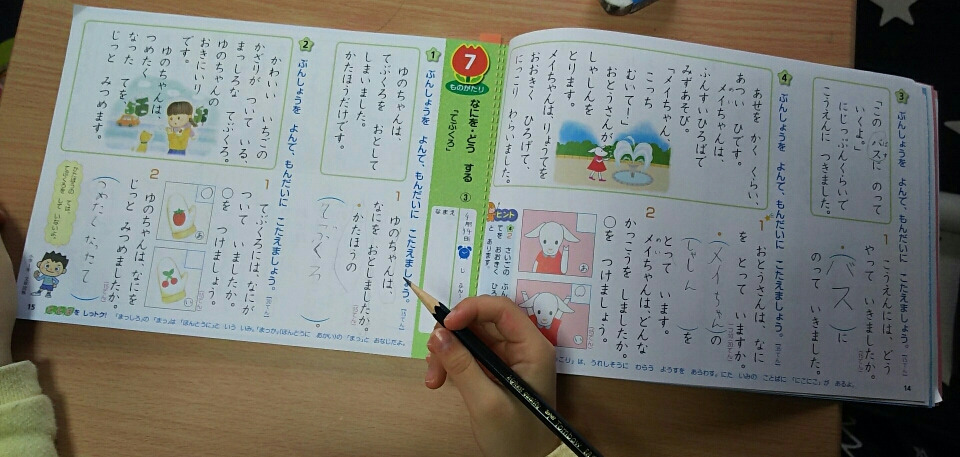 3
ぶんしょうを よんで、もんだいに こたえましょう。
「この バスに のって
いくよ。」
にじっぷんくらいで
こうえんに つきました。
1 こうえんには、どう
やって いきましたか。
(バス)に
のって いきました。
4
ぶんしょうを よんで、もんだいに こたえましょう。
あせを かく くらい、
あつい ひです。
メイちゃんは、
ふんすいひろばで
みずあそび。
「メイちゃん、
こっち
むいてー」
おとうさんが
しゃしんを
とります。
メイちゃんは、りょうてを
おおきく ひろげて、
にっこり わらいました。
1 おとうさんは、なに
を とって いますか。
(メイちゃん)の
(しゃしん)を
とって います。
2 メイちゃんは、どんな
かっこうを しましたか。
○を つけましょう。
あ
い
ヒント
14
7
ものがたり
なにを・どう する
「てぶくろ」
③
なまえ
1
ぶんしょうを よんで、もんだいに こたえましょう。
ゆのちゃんは、
てぶくろを おとして
しまいました。
かたほうだけです。
1 ゆのちゃんは、
なにを おとしましたか。
・かたほうの
(てぶくろ)。
2
ぶんしょうを よんで、もんだいに こたえましょう。
かわいい いちごの
かざりが ついて いる、
まっしろな てぶくろ。
ゆのちゃんの
おきにいり
です。
ゆのちゃんは、
つめたく
なった てを、
じっと みつめます。
1 てぶくろには、なにが
ついて いましたか。
○を つけましょう。
○
あ
い
2 ゆのちゃんは、なにを
じっと みつめましたか。
(つめたくなったて)
かたほうの ては、
てぶくろを して いないよ。
をしっトク! 「まっしろ」の「まっ」は「ほんとうに」と いう いみ。「まっか」(ほんとうに あかい)の「まっ」と おなじだよ。
15